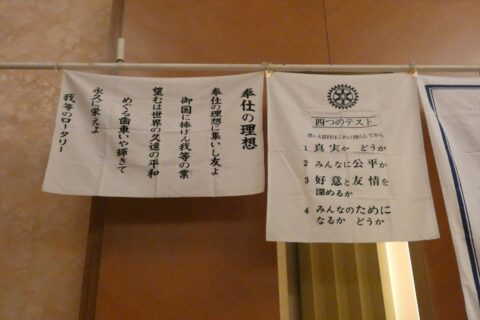 奉仕の理想
奉仕の理想に集いし友よ
御国に捧げん我等の業
望むは世界の久遠の平和
めぐる歯車いや輝きて
永久に栄えよ
我等のロータリー
四つのテスト
言行はこれに照らしてから
1 真実か どうか
2 みんなに公平か
3 好意と友情を
深めるか
4 みんなのために
なるか どうか